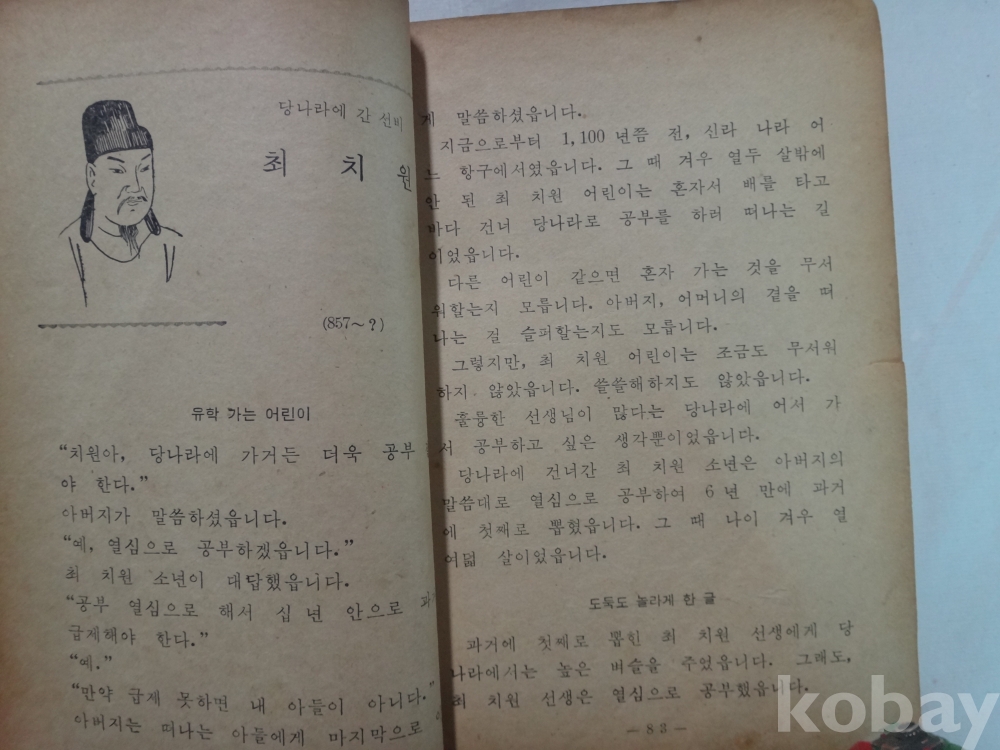 당나라에 간 선비
최 치 원
(857~?)
유학 가는 어린이
“치원아, 당나라에 가거든 더욱 공부
야 한다.”
아버지가 말씀하셨읍니다.
“예, 열심으로 공부하겠읍니다.”
최 치원 소년이 대답했읍니다.
“공부 열심으로 해서 십 년 안으로
급제해야 한다.”
“예.”
“만약 급제 못하면 내 아들이 아니다.”
아버지는 떠나는 아들에게 마지막으로
게 말씀하셨읍니다.
지금으로부터 1,100 년쯤 전, 신라 나라 어
느 항구에서였읍니다. 그 때 겨우 열두 살밖에
안 된 최 치원 어린이는 혼자서 배를 타고
바다 건너 당나라로 공부를 하러 떠나는 길
이었읍니다.
다른 어린이 같으면 혼자 가는 것을 무서
워할는지 모릅니다. 아버지, 어머니의 곁을 떠
나는 걸 슬퍼할는지도 모릅니다.
그렇지만, 최 치원 어린이는 조금도 무서워
하지 않았읍니다. 쓸쓸해하지도 않았읍니다.
훌륭한 선생님이 많다는 당나라에 어서 가
서 공부하고 싶은 생각뿐이었읍니다.
당나라에 건너간 최 치원 소년은 아버지의
말씀대로 열심으로 공부하여 6 년 만에 과거
에 첫째로 뽑혔읍니다. 그 때 나이 겨우 열
여덟 살이었읍니다.
도둑도 놀라게 한 글
과거에 첫째로 뽑힌 최 치원 선생에게 당
나라에서는 높은 벼슬을 주었읍니다. 그래도,
최 치원 선생은 열심으로 공부했읍니다.
— 83 —
kobay